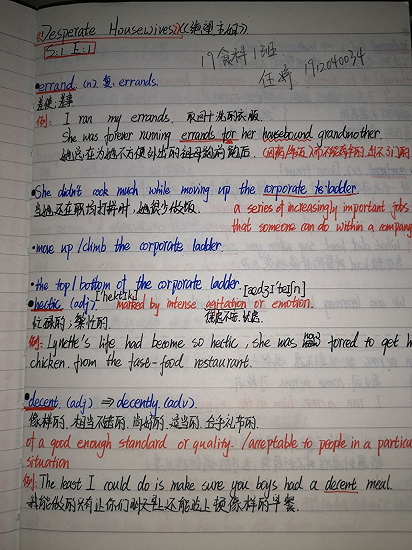 Desperate Housewives》《绝望主妇》.
S:1 E:1
19食科1班
1912040034
errand. (n). 复: errands.
差使, 差事
例: I ran my errands. 取回干洗的衣服.
She was forever running errands for her housebound grandmother.
She didn't cook much while moving up the corporate ladder.
当她还在职场打拼时, 她很少做饭. a series of increasingly important jobs
that someone can do within a company
move up/climb the corporate ladder.
the top/bottom of the corporate ladder.
hectic (adj) ['hektɪk] marked by intense agitation or emotion.
忙碌的, 繁忙的.
例: Lynette's life had become so hectic, she was now forced to get
chicken. from the fast-food restaurant.
decent (adj) ⇒ decently. (adv).
像样的. 相当不错的. 尚好的. 适当的. 合乎礼节的.
of a good enough standard or quality. /acceptable to people in a particu
situation
例: The least I could do is make sure you boys had a decent meal.
我能做的只有让你们男子汉还能吃上顿像样的早餐.